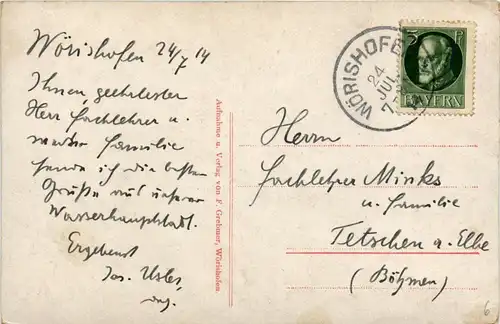 Wörishofen 24/7 14
Ihnen, geehrtester
Herr Fachlehrer u.
werter Familie
sende ich die besten
Grüße aus unserer
Wasserhauptstadt.
Ergebenst
Jos.
Aufnahme u. Verlag von F. Grebmer, Wörishofen.
WÖRISHOFE
24
JUL
7
5 P
BAYERN
Herrn
Fachlehrer Minks
u. Familie
Tetschen a. Elbe
(Böhmen)
6